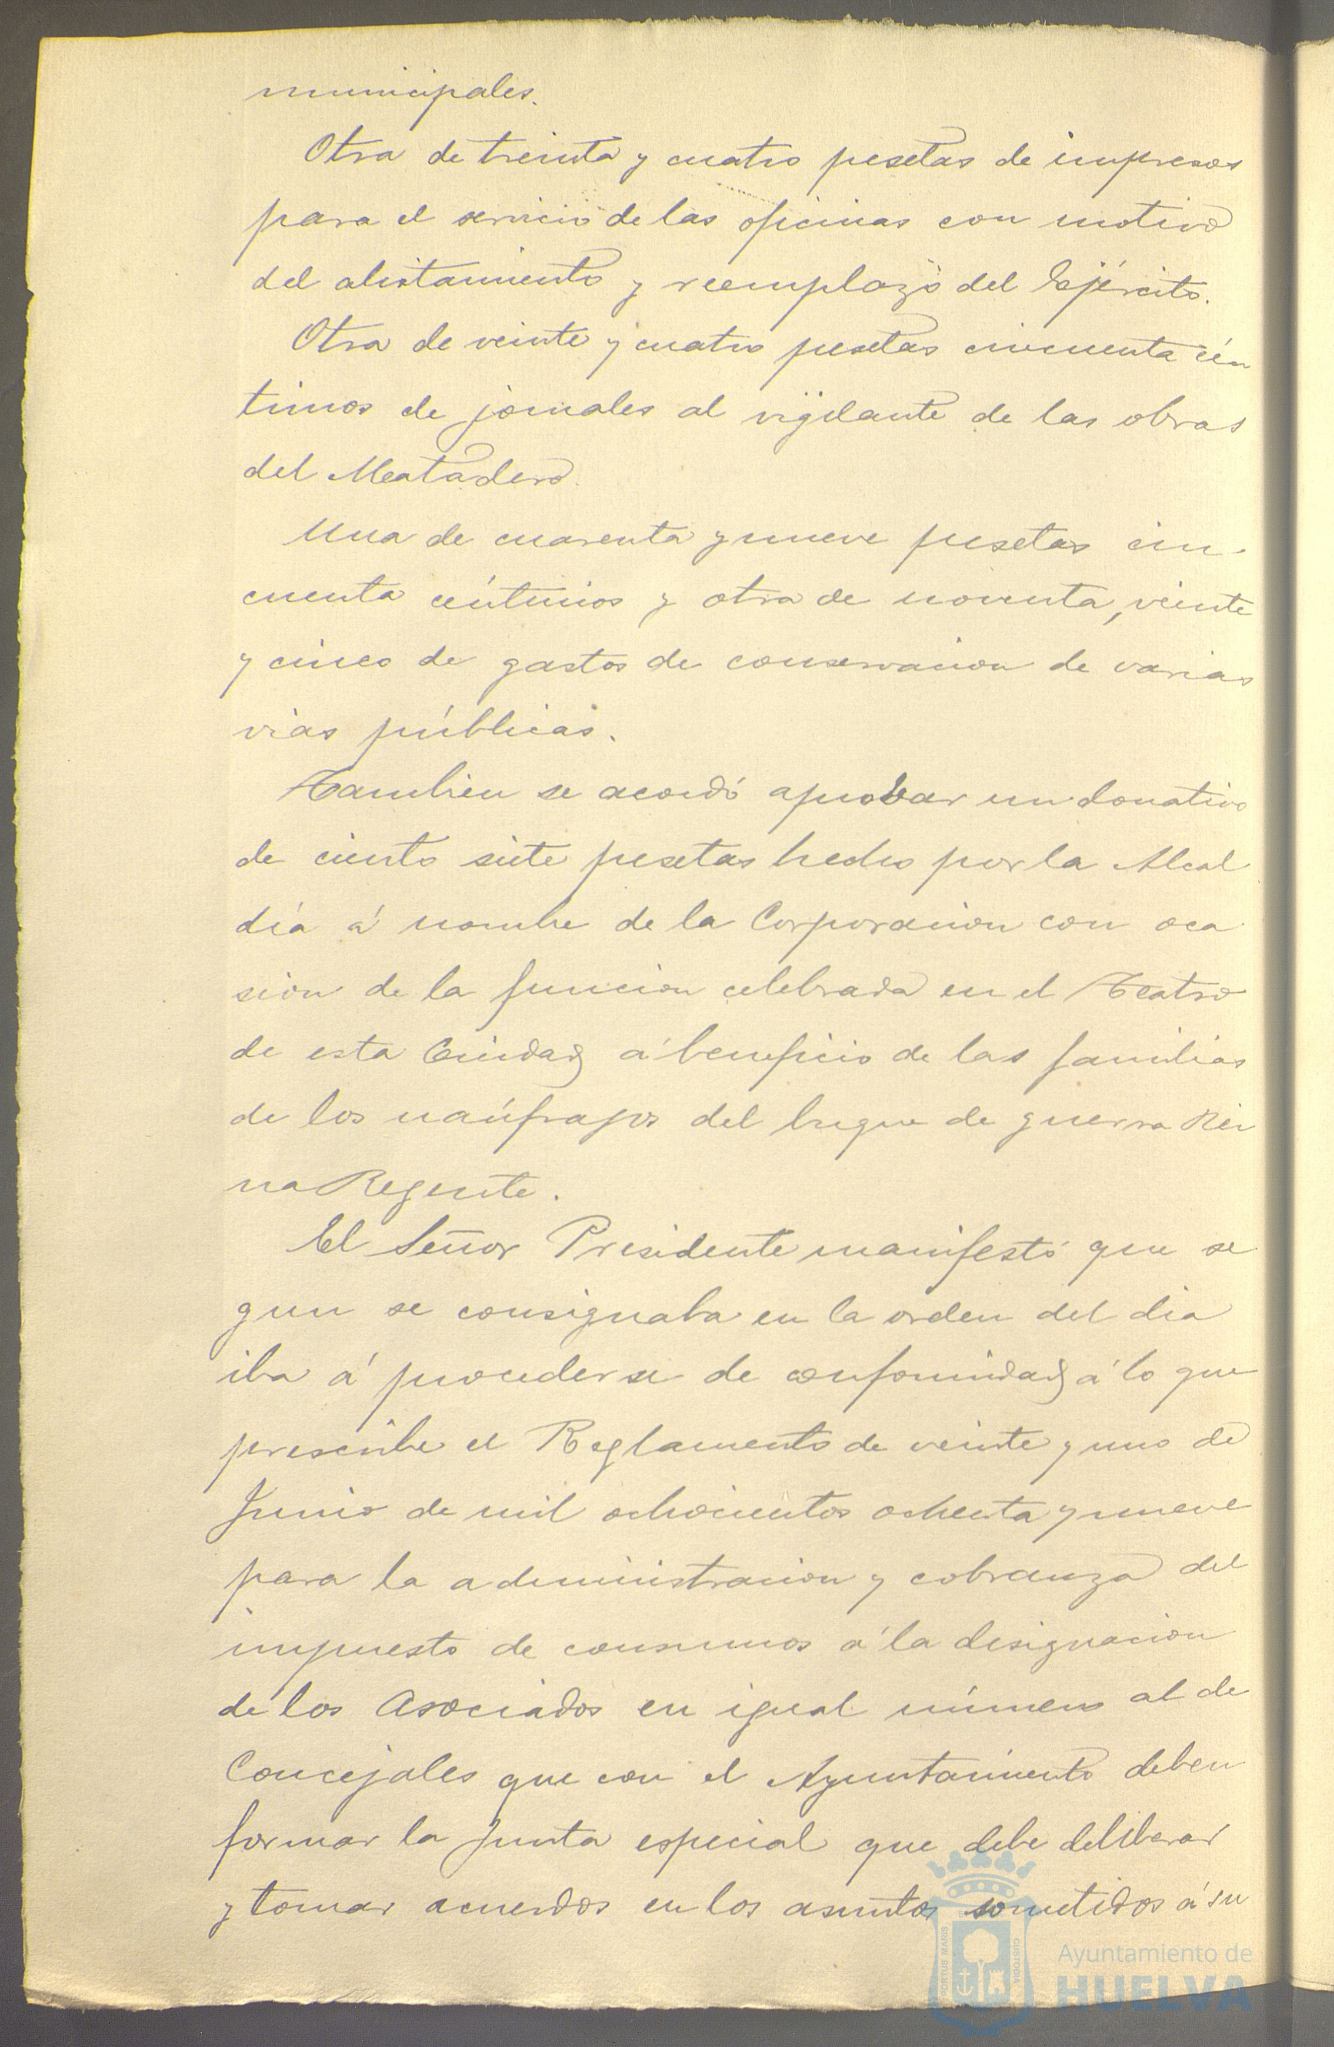 municipales.
Otra de treinta y cuatro pesetas de impresos
para el servicio de las oficinas con motivo
del alistamiento y reemplazo del Ejército.
Otra de veinte y cuatro pesetas cincuenta cén
timos de jornales al vigilante de las obras
del Matadero.
Una de cuarenta y nueve pesetas cin-
cuenta céntimos y otra de noventa, veinte
y cinco de gastos de conservacion de varias
vias públicas.
Tambien se acordó aprobar un donativo
de ciento siete pesetas hecho por la Alcal
día á nombre de la Corporacion con oca
sion de la funcion celebrada en el Teatro
de esta Ciudad á beneficio de las familias
de los naúfragos del buque de guerra Rei
na Regente.
El Señor Presidente manifestó que se
gun se consignaba en la orden del dia
iba á procederse de conformidad á lo que
prescribe el Reglamento de veinte y uno de
Junio de mil ochocientos ochenta y nueve
para la administracion y cobranza del
impuesto de consumos á la designacion
de los Asociados en igual número al de
Concejales que con el Ayuntamiento deben
formar la Junta especial que debe deliberar
y tomar acuerdos en los asuntos sometidos á su
Ayuntamiento de
HUELVA